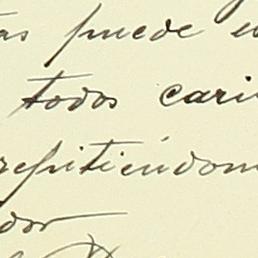 as puede
todos cari
repitiéndom
dor